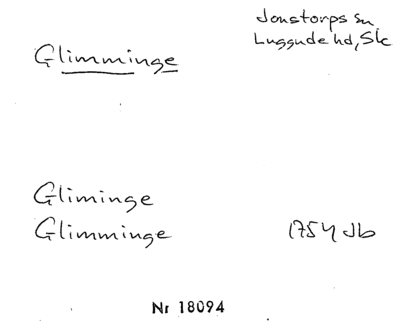 Jonstorps sn,
Luggude hd, Sk
Glimminge
Gliminge
Glimminge 1754 Jb
Nr 18094